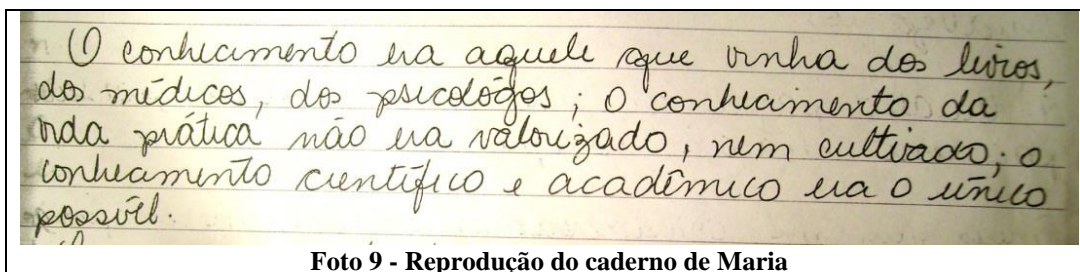 O conhecimento era aquele que vinha dos livros,
dos médicos, dos psicológos; o conhecimento da
vida prática não era valorizado, nem cultivado; o
conhecimento científico e acadêmico era o único
possível.
Foto 9 - Reprodução do caderno de Maria